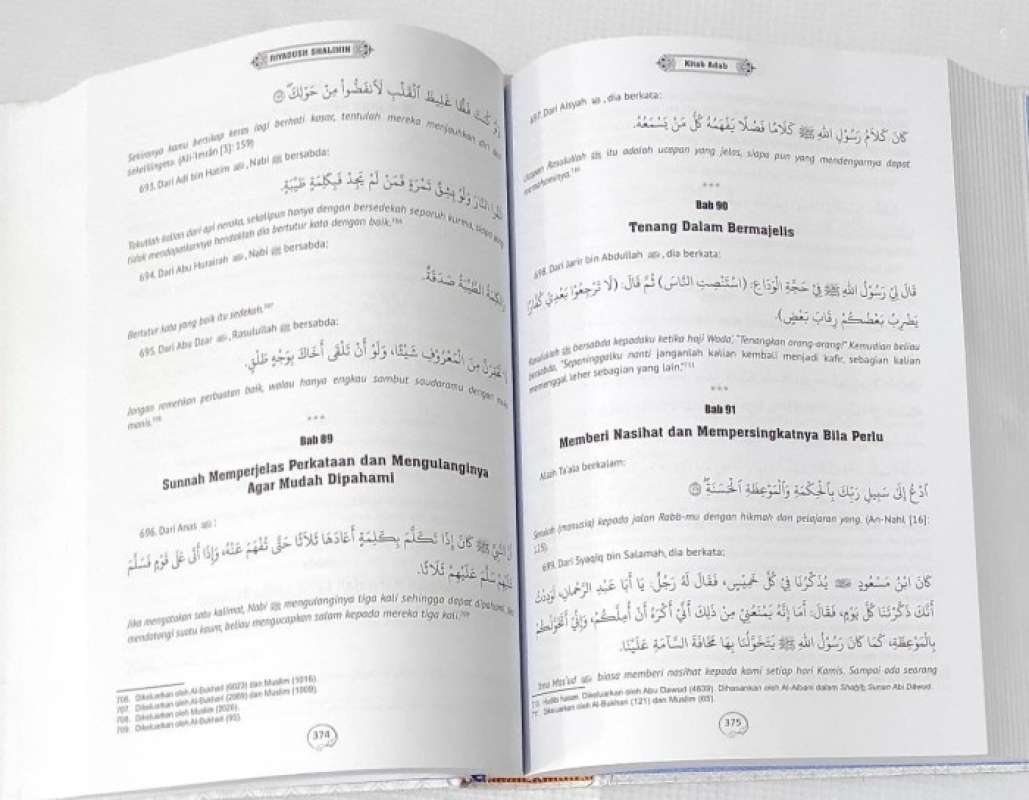 RIYADUSH SHALIHIN
كُنْتَ فَظًّا غَلِيظَ الْقَلْبِ لَانْفَضُّوا مِنْ حَوْلِكَ
Sekiranya kamu bersikap keras lagi berhati kasar, tentulah mereka menjauhkan diri dari
sekelilingmu. (Ali-'Imrân [3]: 159)
693. Dari Adi bin Hatim ؓ, Nabi ﷺ bersabda:
النَّارَ وَلَوْ بِشِقِّ تَمْرَةٍ فَمَنْ لَمْ يَجِدْ فَبِكَلِمَةٍ طَيِّبَةٍ.
Takutlah kalian dari api neraka, sekalipun hanya dengan bersedekah separuh kurma, siapa yang
tidak mendapatkannya hendaklah dia bertutur kata dengan baik.
694. Dari Abu Hurairah ؓ, Nabi ﷺ bersabda:
الْكَلِمَةُ الطَّيِّبَةُ صَدَقَةٌ.
Bertutur kata yang baik itu sedekah.⁷⁰⁷
695. Dari Abu Dzar ؓ, Rasulullah ﷺ bersabda:
مِنَ الْمَعْرُوفِ شَيْئًا، وَلَوْ أَنْ تَلْقَى أَخَاكَ بِوَجْهٍ طَلْقٍ.
Jangan remehkan perbuatan baik, walau hanya engkau sambut saudaramu dengan
manis.⁷⁰⁸
***
Bab 89
Sunnah Memperjelas Perkataan dan Mengulanginya
Agar Mudah Dipahami
696. Dari Anas ؓ:
النَّبِيَّ ﷺ كَانَ إِذَا تَكَلَّمَ بِكَلِمَةٍ أَعَادَهَا ثَلَاثًا حَتَّى تُفْهَمَ عَنْهُ، وَإِذَا أَتَى عَلَى قَوْمٍ فَسَلَّمَ
عَلَيْهِمْ سَلَّمَ عَلَيْهِمْ ثَلَاثًا.
Jika mengatakan satu kalimat, Nabi ﷺ mengulanginya tiga kali sehingga dapat dipahami,
mendatangi suatu kaum, beliau mengucapkan salam kepada mereka tiga kali.⁷⁰⁹
706. Dikeluarkan oleh Al-Bukhari (6023) dan Muslim (1016).
707. Dikeluarkan oleh Al-Bukhari (2989) dan Muslim (1009).
708. Dikeluarkan oleh Muslim (2626).
709. Dikeluarkan oleh Al-Bukhari (95).
374
Kitab Adab
697. Dari Aisyah ؓ, dia berkata:
كَانَ كَلَامُ رَسُولِ اللهِ ﷺ كَلَامًا فَصْلًا يَفْهَمُهُ كُلُّ مَنْ يَسْمَعُهُ.
Ucapan Rasulullah ﷺ itu adalah ucapan yang jelas, siapa pun yang mendengarnya dapat
memahaminya.
***
Bab 90
Tenang Dalam Bermajelis
698. Dari Jarir bin Abdullah ؓ, dia berkata:
قَالَ لِي رَسُولُ اللهِ ﷺ فِي حَجَّةِ الْوَدَاعِ: (اسْتَنْصِتِ النَّاسَ) ثُمَّ قَالَ: (لَا تَرْجِعُوا بَعْدِي كُفَّارًا
يَضْرِبُ بَعْضُكُمْ رِقَابَ بَعْضٍ).
Rasulullah ﷺ bersabda kepadaku ketika haji Wada', "Tenangkan orang-orang!" Kemudian beliau
bersabda, "Sepeninggalku nanti janganlah kalian kembali menjadi kafir, sebagian kalian
memenggal leher sebagian yang lain."
***
Bab 91
Memberi Nasihat dan Mempersingkatnya Bila Perlu
Allah Ta'ala berkalam:
ادْعُ إِلَى سَبِيلِ رَبِّكَ بِالْحِكْمَةِ وَالْمَوْعِظَةِ الْحَسَنَةِ
Serulah (manusia) kepada jalan Rabb-mu dengan hikmah dan pelajaran yang. (An-Nahl [16]:
125)
699. Dari Syaqiq bin Salamah, dia berkata:
كَانَ ابْنُ مَسْعُودٍ ؓ يُذَكِّرُنَا فِي كُلِّ خَمِيسٍ، فَقَالَ لَهُ رَجُلٌ: يَا أَبَا عَبْدِ الرَّحْمَانِ، لَوَدِدْتُ
أَنَّكَ ذَكَّرْتَنَا كُلَّ يَوْمٍ، فَقَالَ: أَمَا إِنَّهُ يَمْنَعُنِي مِنْ ذَلِكَ أَنِّي أَكْرَهُ أَنْ أُمِلَّكُمْ، وَإِنِّي أَتَخَوَّلُكُمْ
بِالْمَوْعِظَةِ، كَمَا كَانَ رَسُولُ اللهِ ﷺ يَتَخَوَّلُنَا بِهَا مَخَافَةَ السَّآمَةِ عَلَيْنَا.
Ibnu Mas'ud ؓ biasa memberi nasihat kepada kami setiap hari Kamis. Sampai ada seorang
Hadits hasan. Dikeluarkan oleh Abu Dawud (4839). Dihasankan oleh Al-Albani dalam Shahih Sunan Abi Dawud.
Dikeluarkan oleh Al-Bukhari (121) dan Muslim (65).
375